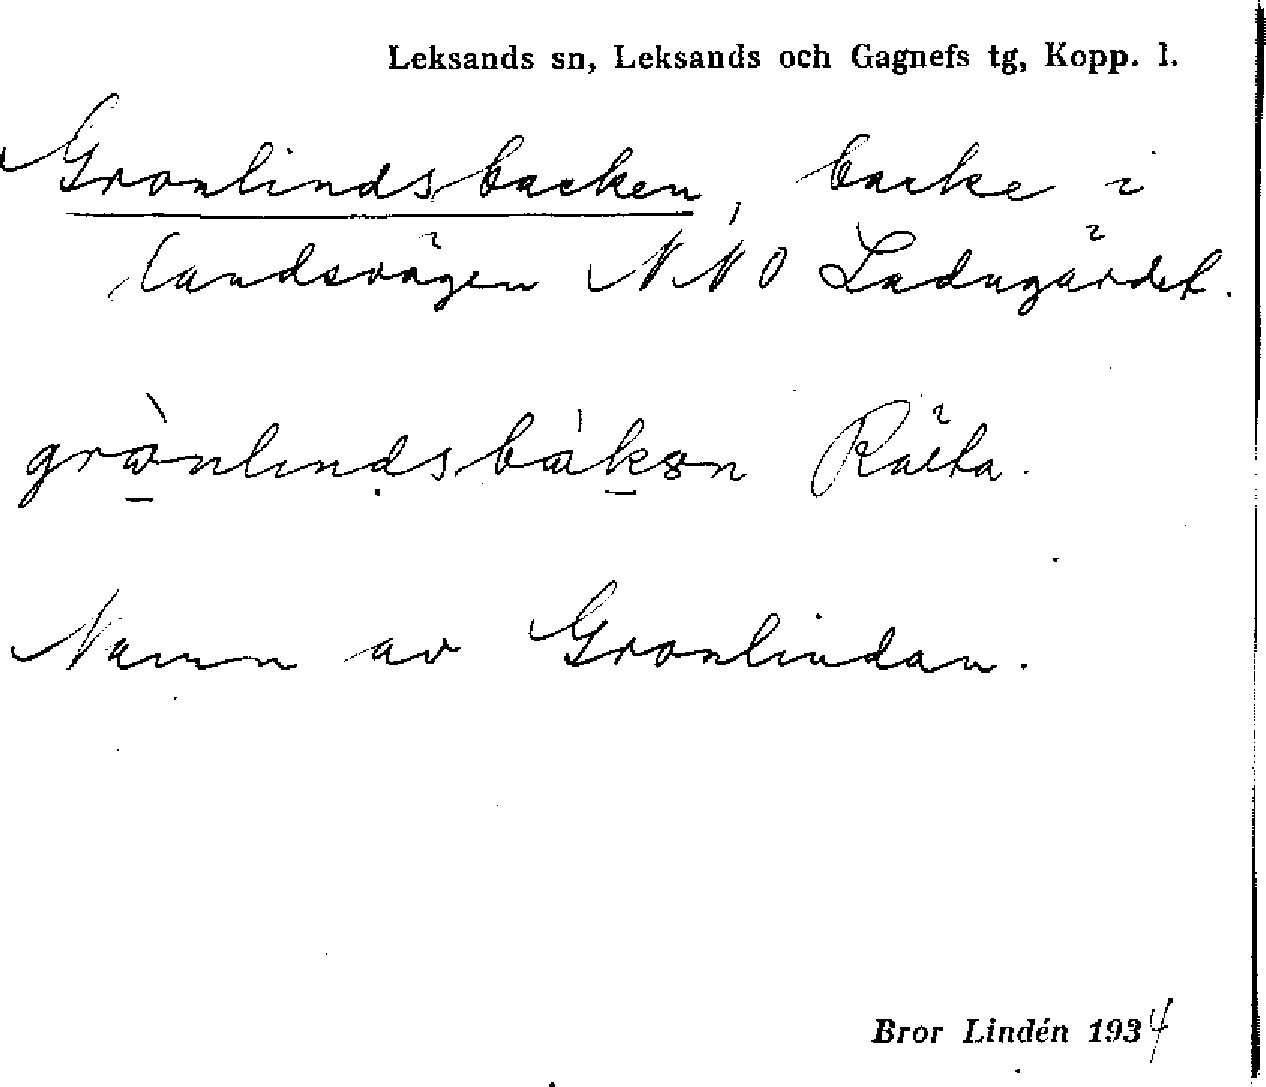 Leksands sn, Leksands och Gagnefs tg, Kopp. l.
Gronlindsbacken, backe i
landsvägen NNO Ladugärdet.
grònlindsbàkən Rälta.
Namn av Gronlindan.
Bror Lindén 1934